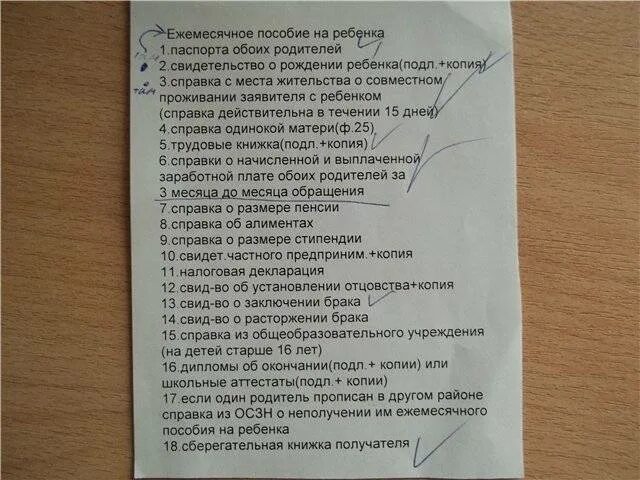 Ежемесячное пособие на ребенка
1.паспорта обоих родителей
2.свидетельство о рождении ребенка(подл.+копия)
3.справка с места жительства о совместном
проживании заявителя с ребенком
(справка действительна в течении 15 дней)
4.справка одинокой матери(ф.25)
5.трудовые книжка(подл.+копия)
6.справки о начисленной и выплаченной
заработной плате обоих родителей за
3 месяца до месяца обращения
7.справка о размере пенсии
8.справка об алиментах
9.справка о размере стипендии
10.свидет.частного предприним.+копия
11.налоговая декларация
12.свид-во об установлении отцовства+копия
13.свид-во о заключении брака
14.свид-во о расторжении брака
15.справка из общеобразовательного учреждения
(на детей старше 16 лет)
16.дипломы об окончании(подл.+ копии) или
школьные аттестаты(подл.+ копии)
17.если один родитель прописан в другом районе
справка из ОСЗН о неполучении им ежемесячного
пособия на ребенка
18.сберегательная книжка получателя